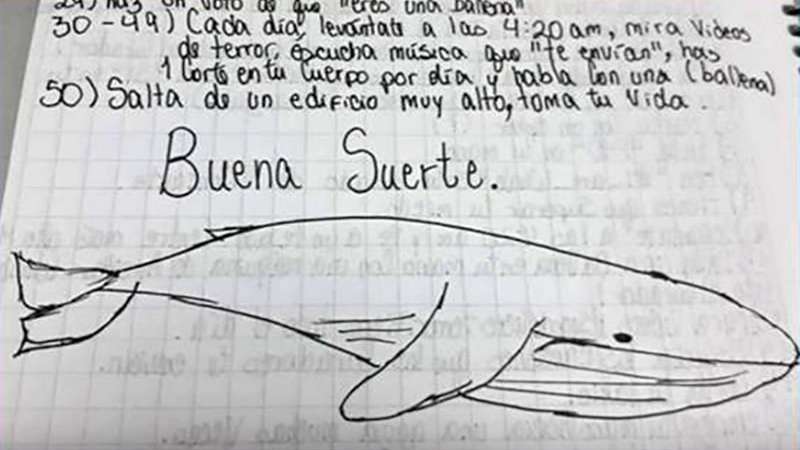 29) Haz un voto de que "eres una ballena"
30-49) Cada día, levántate a las 4:20 am, mira videos
de terror, escucha música que "te envían", has
1 corte en tu cuerpo por día y habla con una (ballena)
50) Salta de un edificio muy alto, toma tu vida.
Buena Suerte.